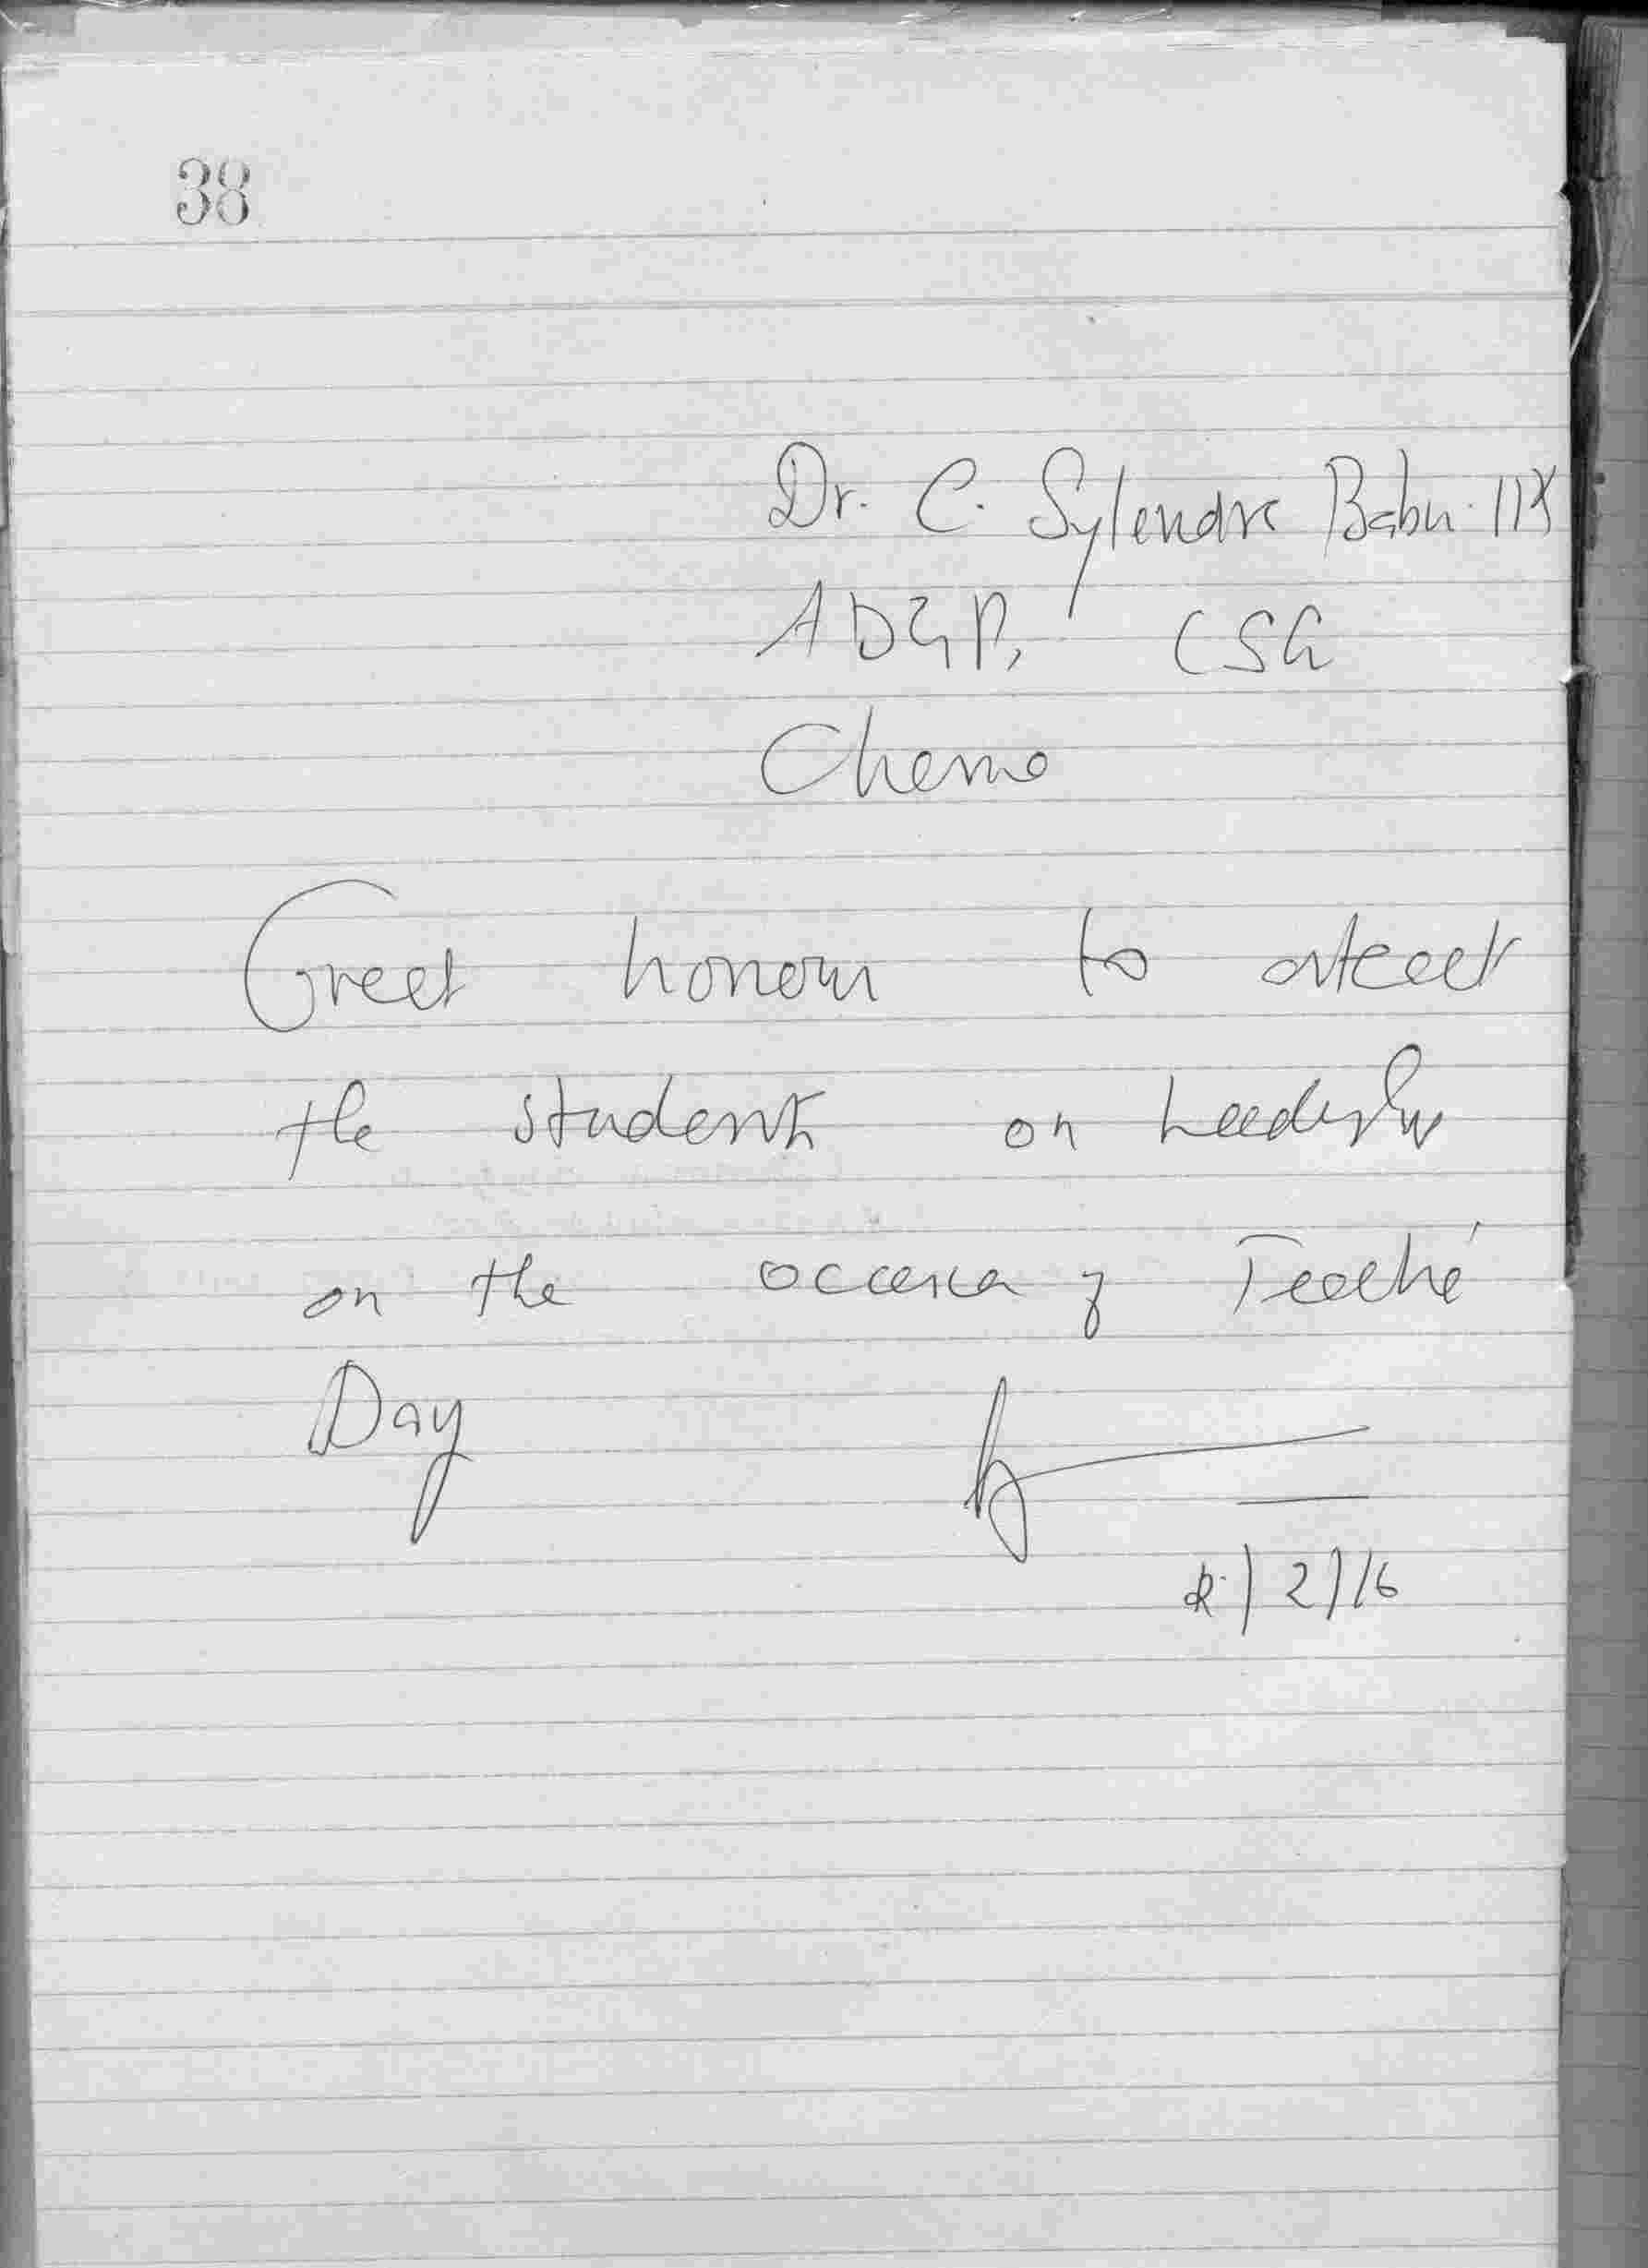 38
Dr. C. Sylendra Babu IPS
ADGP, CSG
Chennai
Great honour to
the students on Leadership
on the occasion of Teachers'
Day
2/16